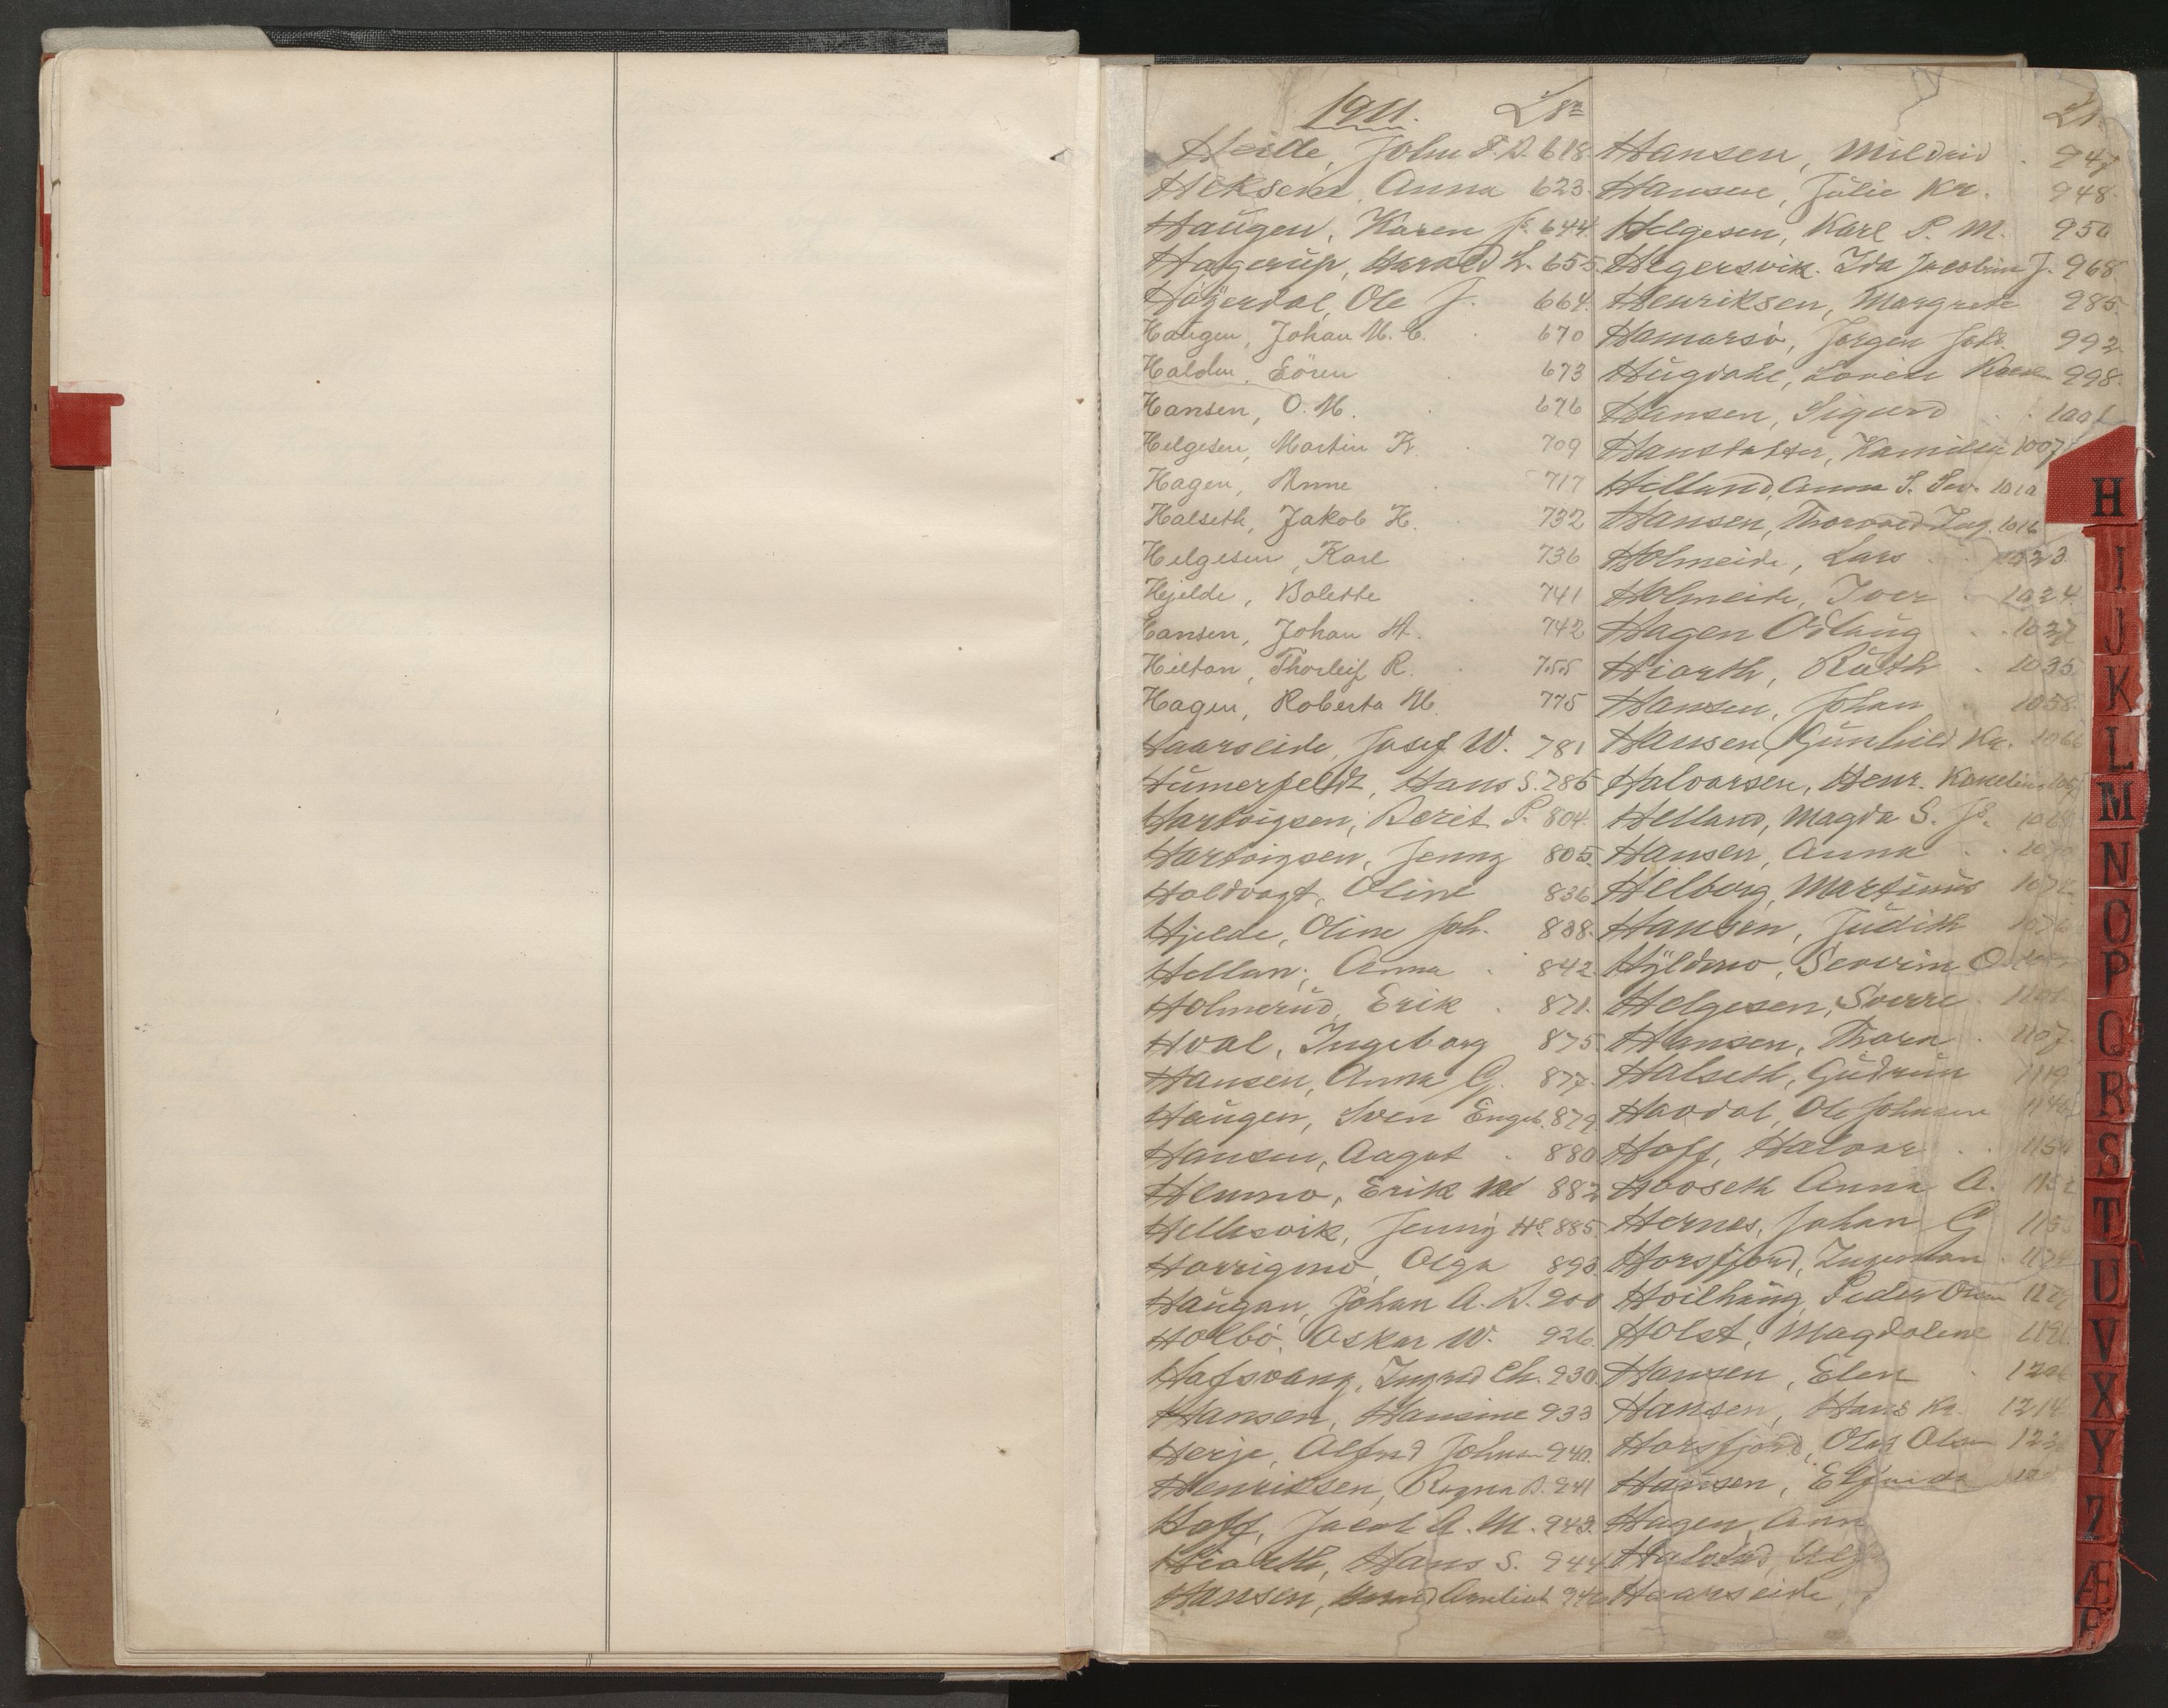 1911. L№
Heide, John P. A. 618
Heksem, Anna 623.
Haugen, Karen Js. 644.
Hagerup, Harald L. 655.
Högerdal, Ole J. 664.
Haugen, Johan M. C. 670
Halden, Sören 673
Hansen, O. M. 676
Helgesen, Martin K. 709
Hagen, Anne 717
Halseth, Jakob H. 732
Helgesen, Karl 736
Hjelde, Bolette 741
Hansen, Johan A. 742
Hiltan, Thorleif R. 755
Hagen, Roberta M. 775
Haarseide, Josef W. 781
Humerfeldt, Hans S. 785
Hartvigsen, Berit P. 804.
Hartvigsen, Jenny 805.
Holdvagt, Oline 836
Hjelde, Oline Joh. 838.
Hellan, Anna 842.
Holmerud, Erik 871.
Hval, Ingeborg 875
Hansen, Anna G. 877.
Haugen, Sven Engeb. 879
Hansen, Aagot 880
Hemmo, Erik 882
Hellesvik, Jenny Hs. 885.
Harrigmo, Olga 893.
Haugan, Johan A. D. 900
Holbö, Oskar W. 926.
Hafsvang, Ingrid Ch. 930
Hansen, Hansine 933
Herje, Alfred Johnsen 940.
Henriksen, Ragna D. 941
Hoff, Jacob A. M. 943.
Hiorth, Hans S. 944
Hansen, Amelie 946
L№
Hansen, Mildrid 947
Hansen, Julie Kr. 948.
Helgesen, Karl P. M. 950
Hegersvik. Ida Jacobine J. 968.
Henriksen, Margrete 985.
Hamarsö, Jørgen Joh. 992.
Hugdahl, Lovise 998.
Hansen, Sigurd 1001
Kamilla 1007
Helland, Anna S. 1010
Hansen, Thorvald Ing. 1016
Holmeide, Lars 1023
Holmeide, Iver 1024.
Hagen Odlaug 1027
Hiorth, Ruth 1035
Hansen, Johan 1058.
Hansen, Gunhild Kr. 1066
Halvorsen, Henr. Kornelius 1067
Helland, Magda S. Js. 1068
Hansen, Anna
Helborg, Martinus
Hansen, Judith 1076
Hyldmo, Severin O.
Helgesen, Sverre 1101
Hansen, Thora 1107.
Halseth, Gudrun 1119
Havdal, Ole Johnsen
Hoff, Halvor 1150
Hooseth Anna A. 1152
Hernes, Johan G
Horsfjord, Ingeman 1174
Hvilhaug, Peder Olsen
Holst, Magdalene
Hansen, Elen
Hansen, Hans Kr. 1214
Horsfjord, Olaf Olsen
Hansen, Elfrida
Hagen, Ann
Halvind
Haarseide
H
I
J
K
L
M
N
O
P
Q
R
S
T
U
V
X
Y
Z
Æ